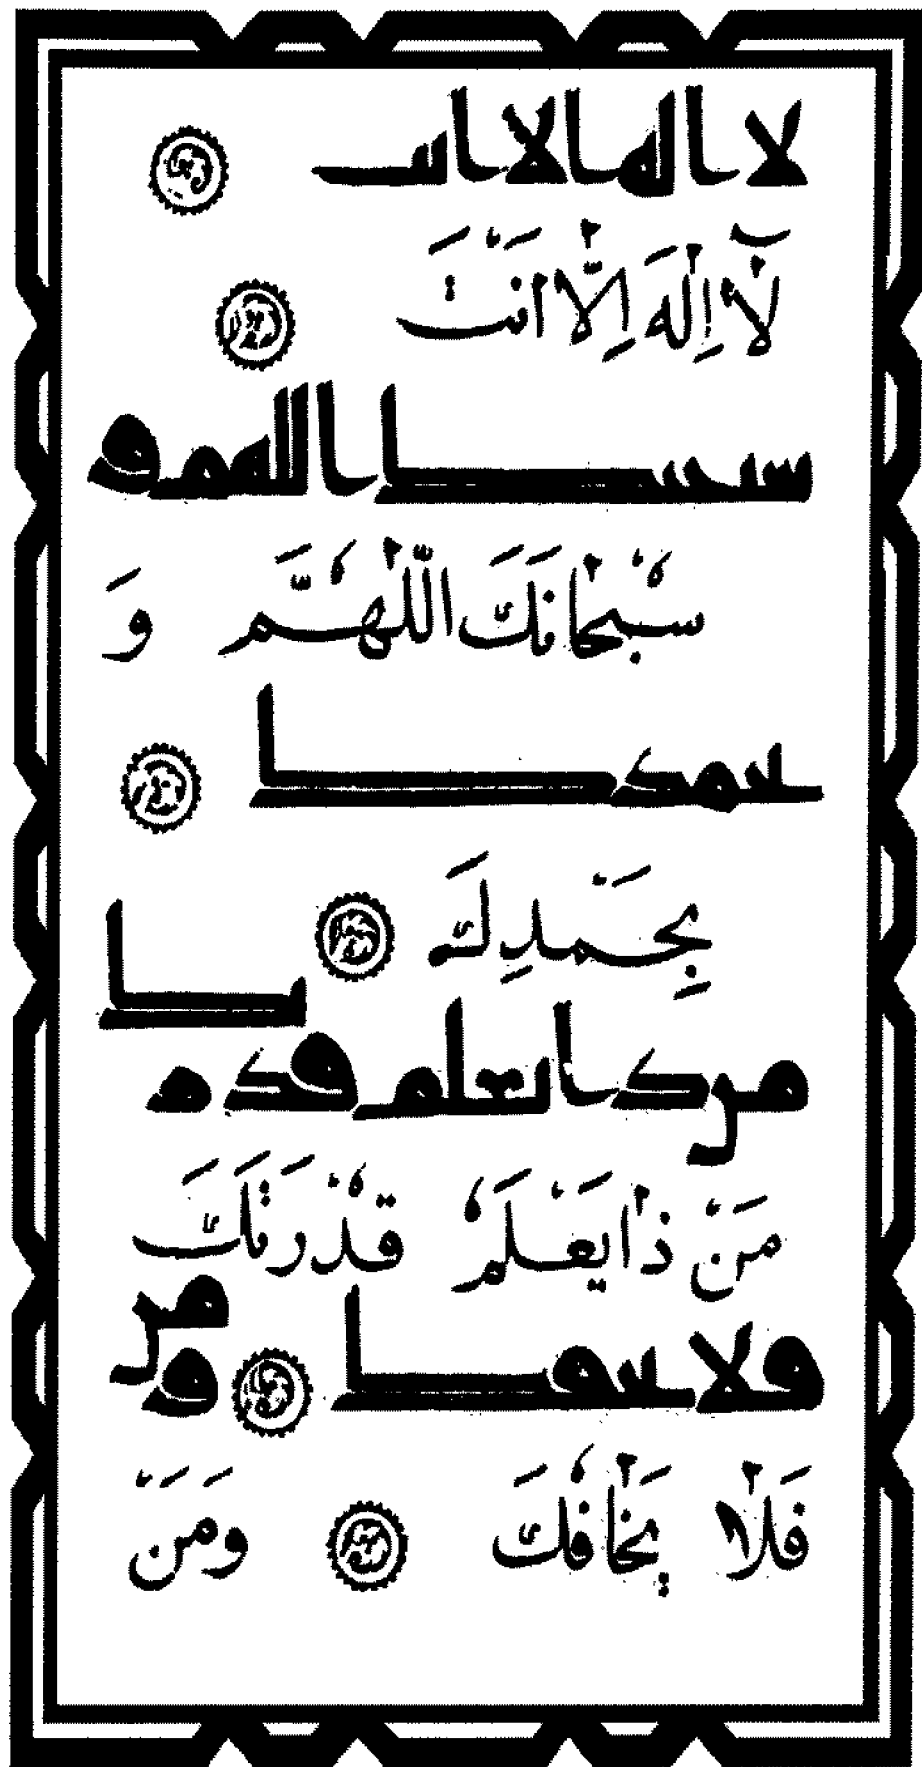 لا اله الا انت
لَآ اِلٰهَ اِلَّا اَنْتَ
سبحانك اللهم و
سُبْحَانَكَ اللّٰهُمَّ وَ
بحمدك
بِحَمْدِكَ
من ذا يعلم قدرتك
مَنْ ذَا يَعْلَمُ قُدْرَتَكَ
فلا يخافك ومن
فَلَا يَخَافُكَ وَمَنْ